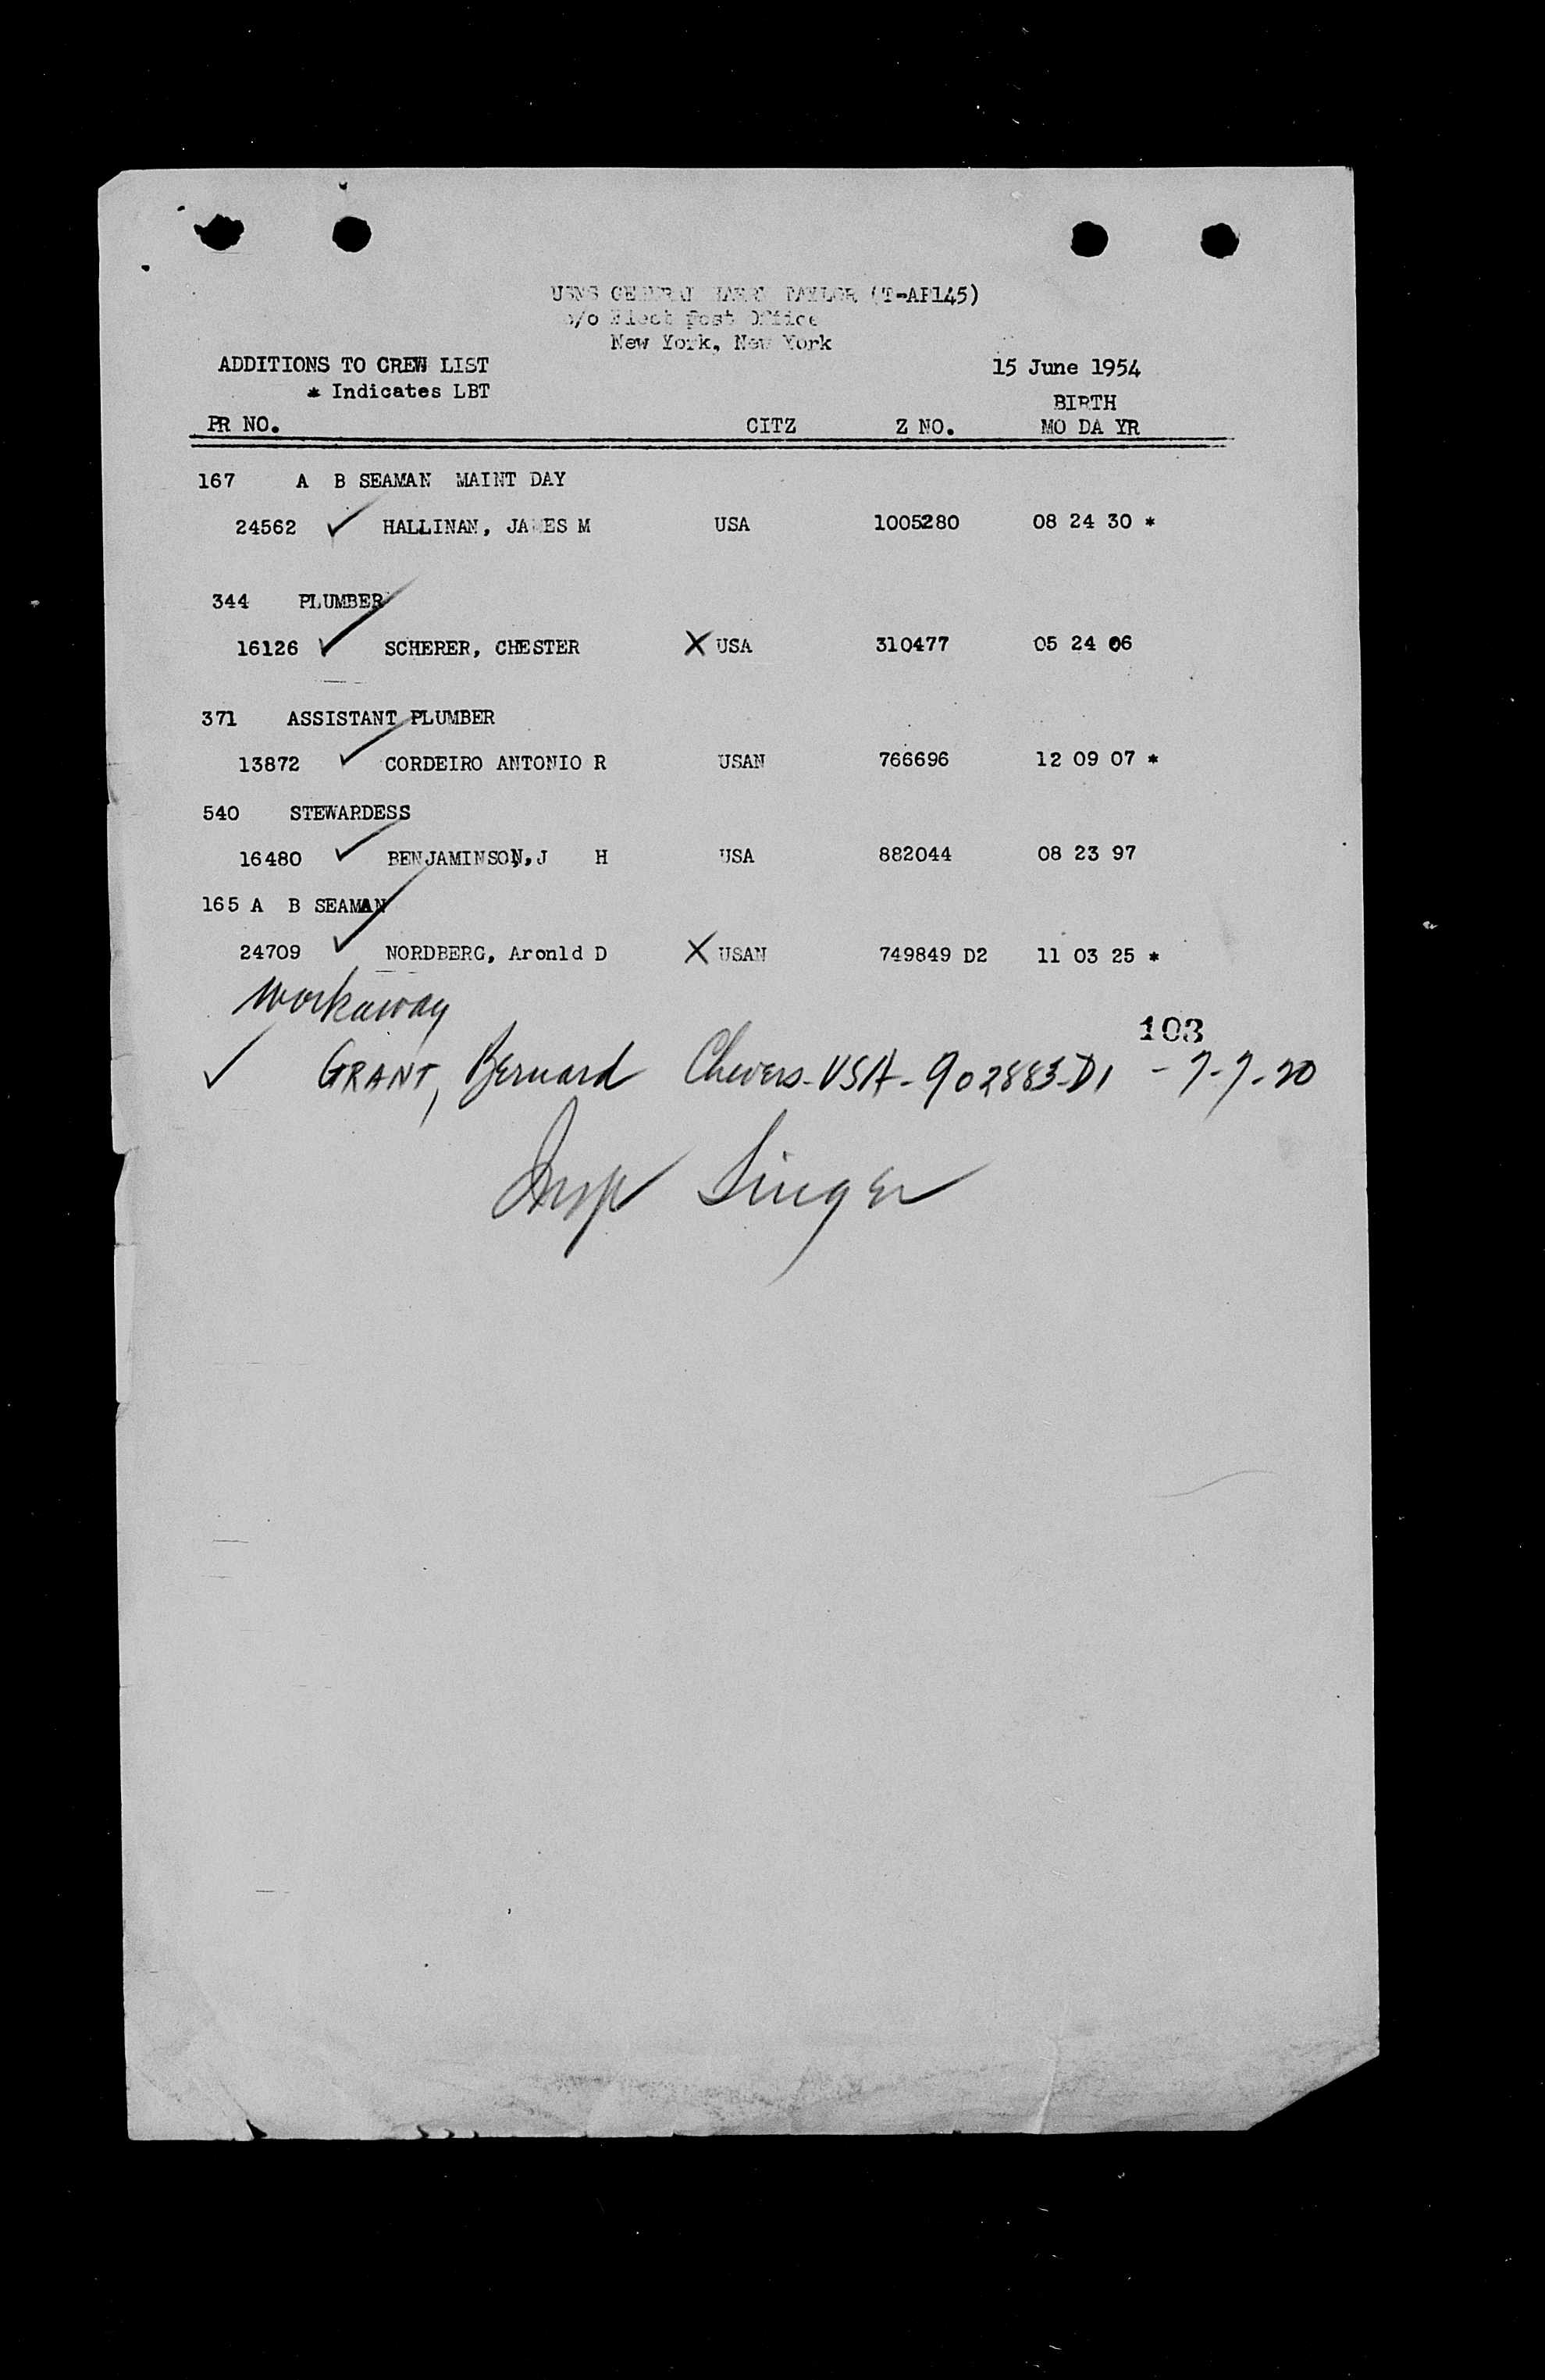 USNS GENERAL HARRY TAYLOR (T-AP145)
c/o Fleet Post Office
New York, New York
ADDITIONS TO CREW LIST 15 June 1954
* Indicates LBT
BIRTH
PR NO. CITZ Z NO. MO DA YR
167 A B SEAMAN MAINT DAY
24562 ✓ HALLINAN, JAMES M USA 1005280 08 24 30 *
344 PLUMBER
16126 ✓ SCHERER, CHESTER X USA 310477 05 24 06
371 ASSISTANT PLUMBER
13872 ✓ CORDEIRO ANTONIO R USAN 766696 12 09 07 *
540 STEWARDESS
16480 ✓ BENJAMINSON, J H USA 882044 08 23 97
165 A B SEAMAN
24709 ✓ NORDBERG, Aronld D X USAN 749849 D2 11 03 25 *
Workaway
103
✓ GRANT, Bernard Chevers - USA - 902883-D1 - 7-7-20
Insp Singer